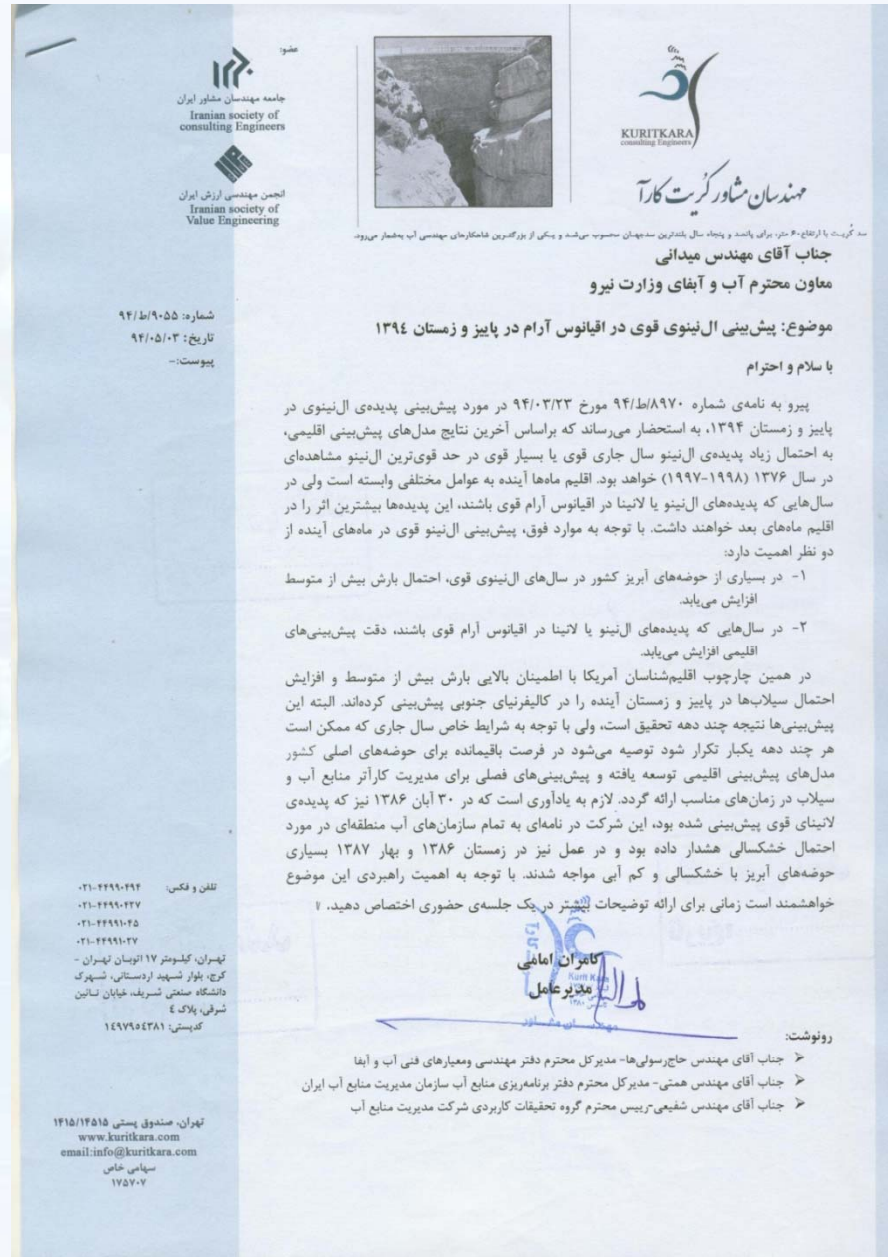 عضو:
جامعه مهندسان مشاور ایران
Iranian society of
consulting Engineers
انجمن مهندسی ارزش ایران
Iranian society of
Value Engineering
KURITKARA
consulting Engineers
مهندسان مشاور کُریت کارآ
سد کُریت با ارتفاع ۶۰ متر، برای پانصد و پنجاه سال بلندترین سدجهان محسوب می‌شد و یکی از بزرگترین شاهکارهای مهندسی آب بشمار می‌رود.
جناب آقای مهندس میدانی
معاون محترم آب و آبفای وزارت نیرو
شماره: ۹۴/ط/۹۰۵۵
تاریخ: ۹۴/۰۵/۰۳
پیوست:-
موضوع: پیش‌بینی ال‌نینوی قوی در اقیانوس آرام در پاییز و زمستان ۱۳۹٤
با سلام و احترام
پیرو به نامه‌ی شماره ۹۴/ط/۸۹۷۰ مورخ ۹۴/۰۳/۲۳ در مورد پیش‌بینی پدیده‌ی ال‌نینوی در
پاییز و زمستان ۱۳۹۴، به استحضار می‌رساند که براساس آخرین نتایج مدل‌های پیش‌بینی اقلیمی،
به احتمال زیاد پدیده‌ی ال‌نینو سال جاری قوی یا بسیار قوی در حد قوی‌ترین ال‌نینو مشاهده‌ای
در سال ۱۳۷۶ (۱۹۹۸-۱۹۹۷) خواهد بود. اقلیم ماه‌ها آینده به عوامل مختلفی وابسته است ولی در
سال‌هایی که پدیده‌های ال‌نینو یا لانینا در اقیانوس آرام قوی باشند، این پدیده‌ها بیشترین اثر را در
اقلیم ماه‌های بعد خواهند داشت. با توجه به موارد فوق، پیش‌بینی ال‌نینو قوی در ماه‌های آینده از
دو نظر اهمیت دارد:
۱- در بسیاری از حوضه‌های آبریز کشور در سال‌های ال‌نینوی قوی، احتمال بارش بیش از متوسط
افزایش می‌یابد.
۲- در سال‌هایی که پدیده‌های ال‌نینو یا لانینا در اقیانوس آرام قوی باشند، دقت پیش‌بینی‌های
اقلیمی افزایش می‌یابد.
در همین چارچوب اقلیم‌شناسان آمریکا با اطمینان بالایی بارش بیش از متوسط و افزایش
احتمال سیلاب‌ها در پاییز و زمستان آینده را در کالیفرنیای جنوبی پیش‌بینی کرده‌اند. البته این
پیش‌بینی‌ها نتیجه چند دهه تحقیق است، ولی با توجه به شرایط خاص سال جاری که ممکن است
هر چند دهه یکبار تکرار شود توصیه می‌شود در فرصت باقیمانده برای حوضه‌های اصلی کشور
مدل‌های پیش‌بینی اقلیمی توسعه یافته و پیش‌بینی‌های فصلی برای مدیریت کارآتر منابع آب و
سیلاب در زمان‌های مناسب ارائه گردد. لازم به یادآوری است که در ۳۰ آبان ۱۳۸۶ نیز که پدیده‌ی
لانینای قوی پیش‌بینی شده بود، این شرکت در نامه‌ای به تمام سازمان‌های آب منطقه‌ای در مورد
احتمال خشکسالی هشدار داده بود و در عمل نیز در زمستان ۱۳۸۶ و بهار ۱۳۸۷ بسیاری
حوضه‌های آبریز با خشکسالی و کم آبی مواجه شدند. با توجه به اهمیت راهبردی این موضوع
خواهشمند است زمانی برای ارائه توضیحات بیشتر در یک جلسه‌ی حضوری اختصاص دهید.
کامران امامی
مدیرعامل
مهندسان مشاور
رونوشت:
جناب آقای مهندس حاج‌رسولی‌ها- مدیرکل محترم دفتر مهندسی ومعیارهای فنی آب و آبفا
جناب آقای مهندس همتی- مدیرکل محترم دفتر برنامه‌ریزی منابع آب سازمان مدیریت منابع آب ایران
جناب آقای مهندس شفیعی-رییس محترم گروه تحقیقات کاربردی شرکت مدیریت منابع آب
تلفن و فکس: ۰۲۱-۴۴۹۹۰۴۹۴
۰۲۱-۴۴۹۹۰۴۲۷
۰۲۱-۴۴۹۹۱۰۴۵
۰۲۱-۴۴۹۹۱۰۲۷
تهران، کیلومتر ۱۷ اتوبان تهران -
کرج، بلوار شهید اردستانی، شهرک
دانشگاه صنعتی شریف، خیابان نائین
شرقی، پلاک ٤
کدپستی: ۱٤۹۷۹۵٤۳۸۱
تهران، صندوق پستی ۱۴۱۵/۱۴۵۱۵
www.kuritkara.com
email:info@kuritkara.com
سهامی خاص
۱۷۵۷۰۷